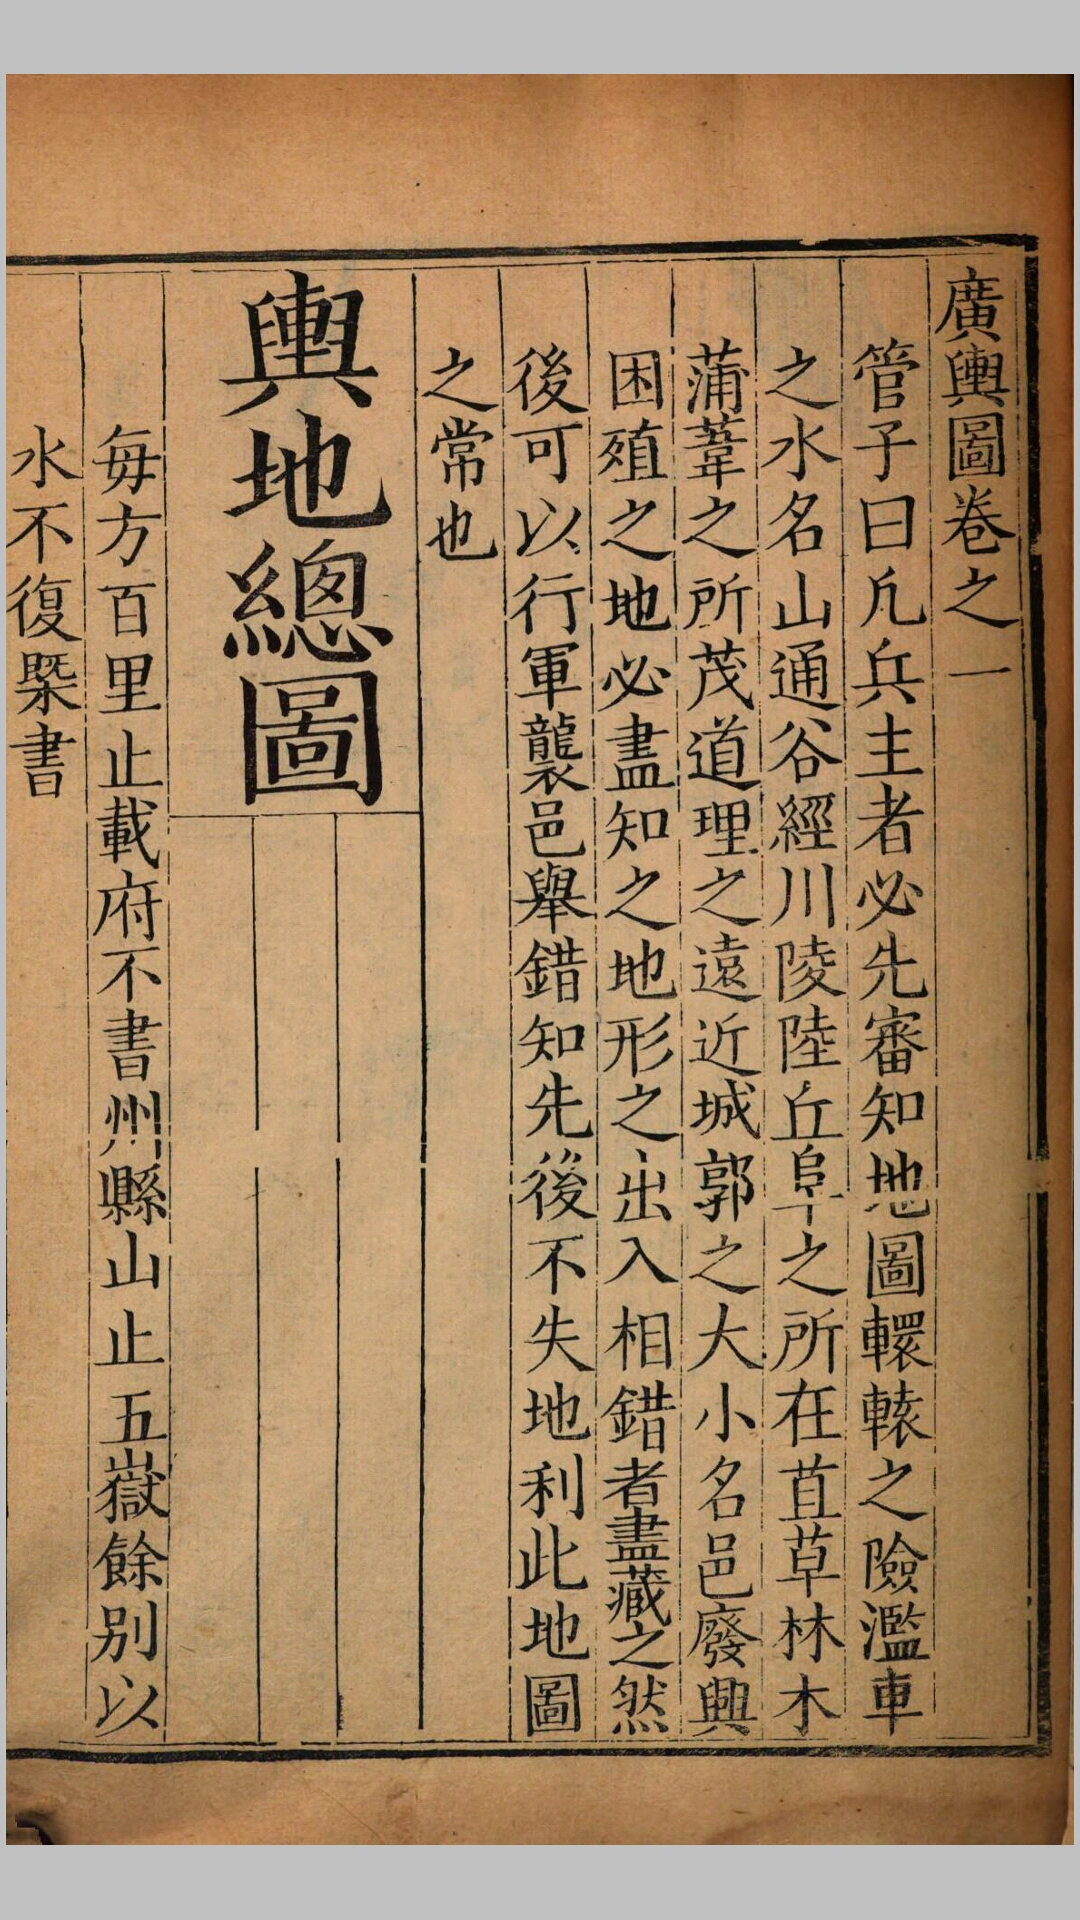 廣輿圖卷之一
管子曰凡兵主者必先審知地圖轘轅之險濫車
之水名山通谷經川陵陸丘阜之所在苴草林木
蒲葦之所茂道理之遠近城郭之大小名邑廢興
困殖之地必盡知之地形之出入相錯者盡藏之然
後可以行軍襲邑舉錯知先後不失地利此地圖
之常也
輿地總圖
每方百里止載府不書州縣山止五嶽餘別以
水不復槩書